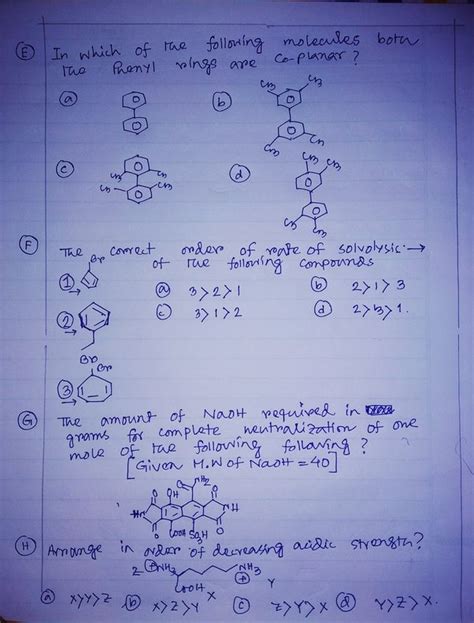 (E) In which of the following molecules both
the Phenyl rings are co-planar?
(a) (b)
CH3 CH3
CH3 CH3
(c) (d)
CH3 CH3
CH3 CH3
CH3 CH3
CH3 CH3
(F) The correct order of rate of solvolysis →
of the following compounds
Br
(1) (a) 3>2>1 (b) 2>1>3
(2) (c) 3>1>2 (d) 2>3>1.
Br
Br
(3)
(G) The amount of NaOH required in
grams for complete neutralization of one
mole of the following following?
[Given M.W of NaOH = 40]
O NH2
O OH O
HN NH
O O
COOH SO3H
(H) Arrange in order of decreasing acidic strength?
Z NH3 NH3
COOH X Y
(a) X>Y>Z (b) X>Z>Y (c) Z>Y>X (d) Y>Z>X.